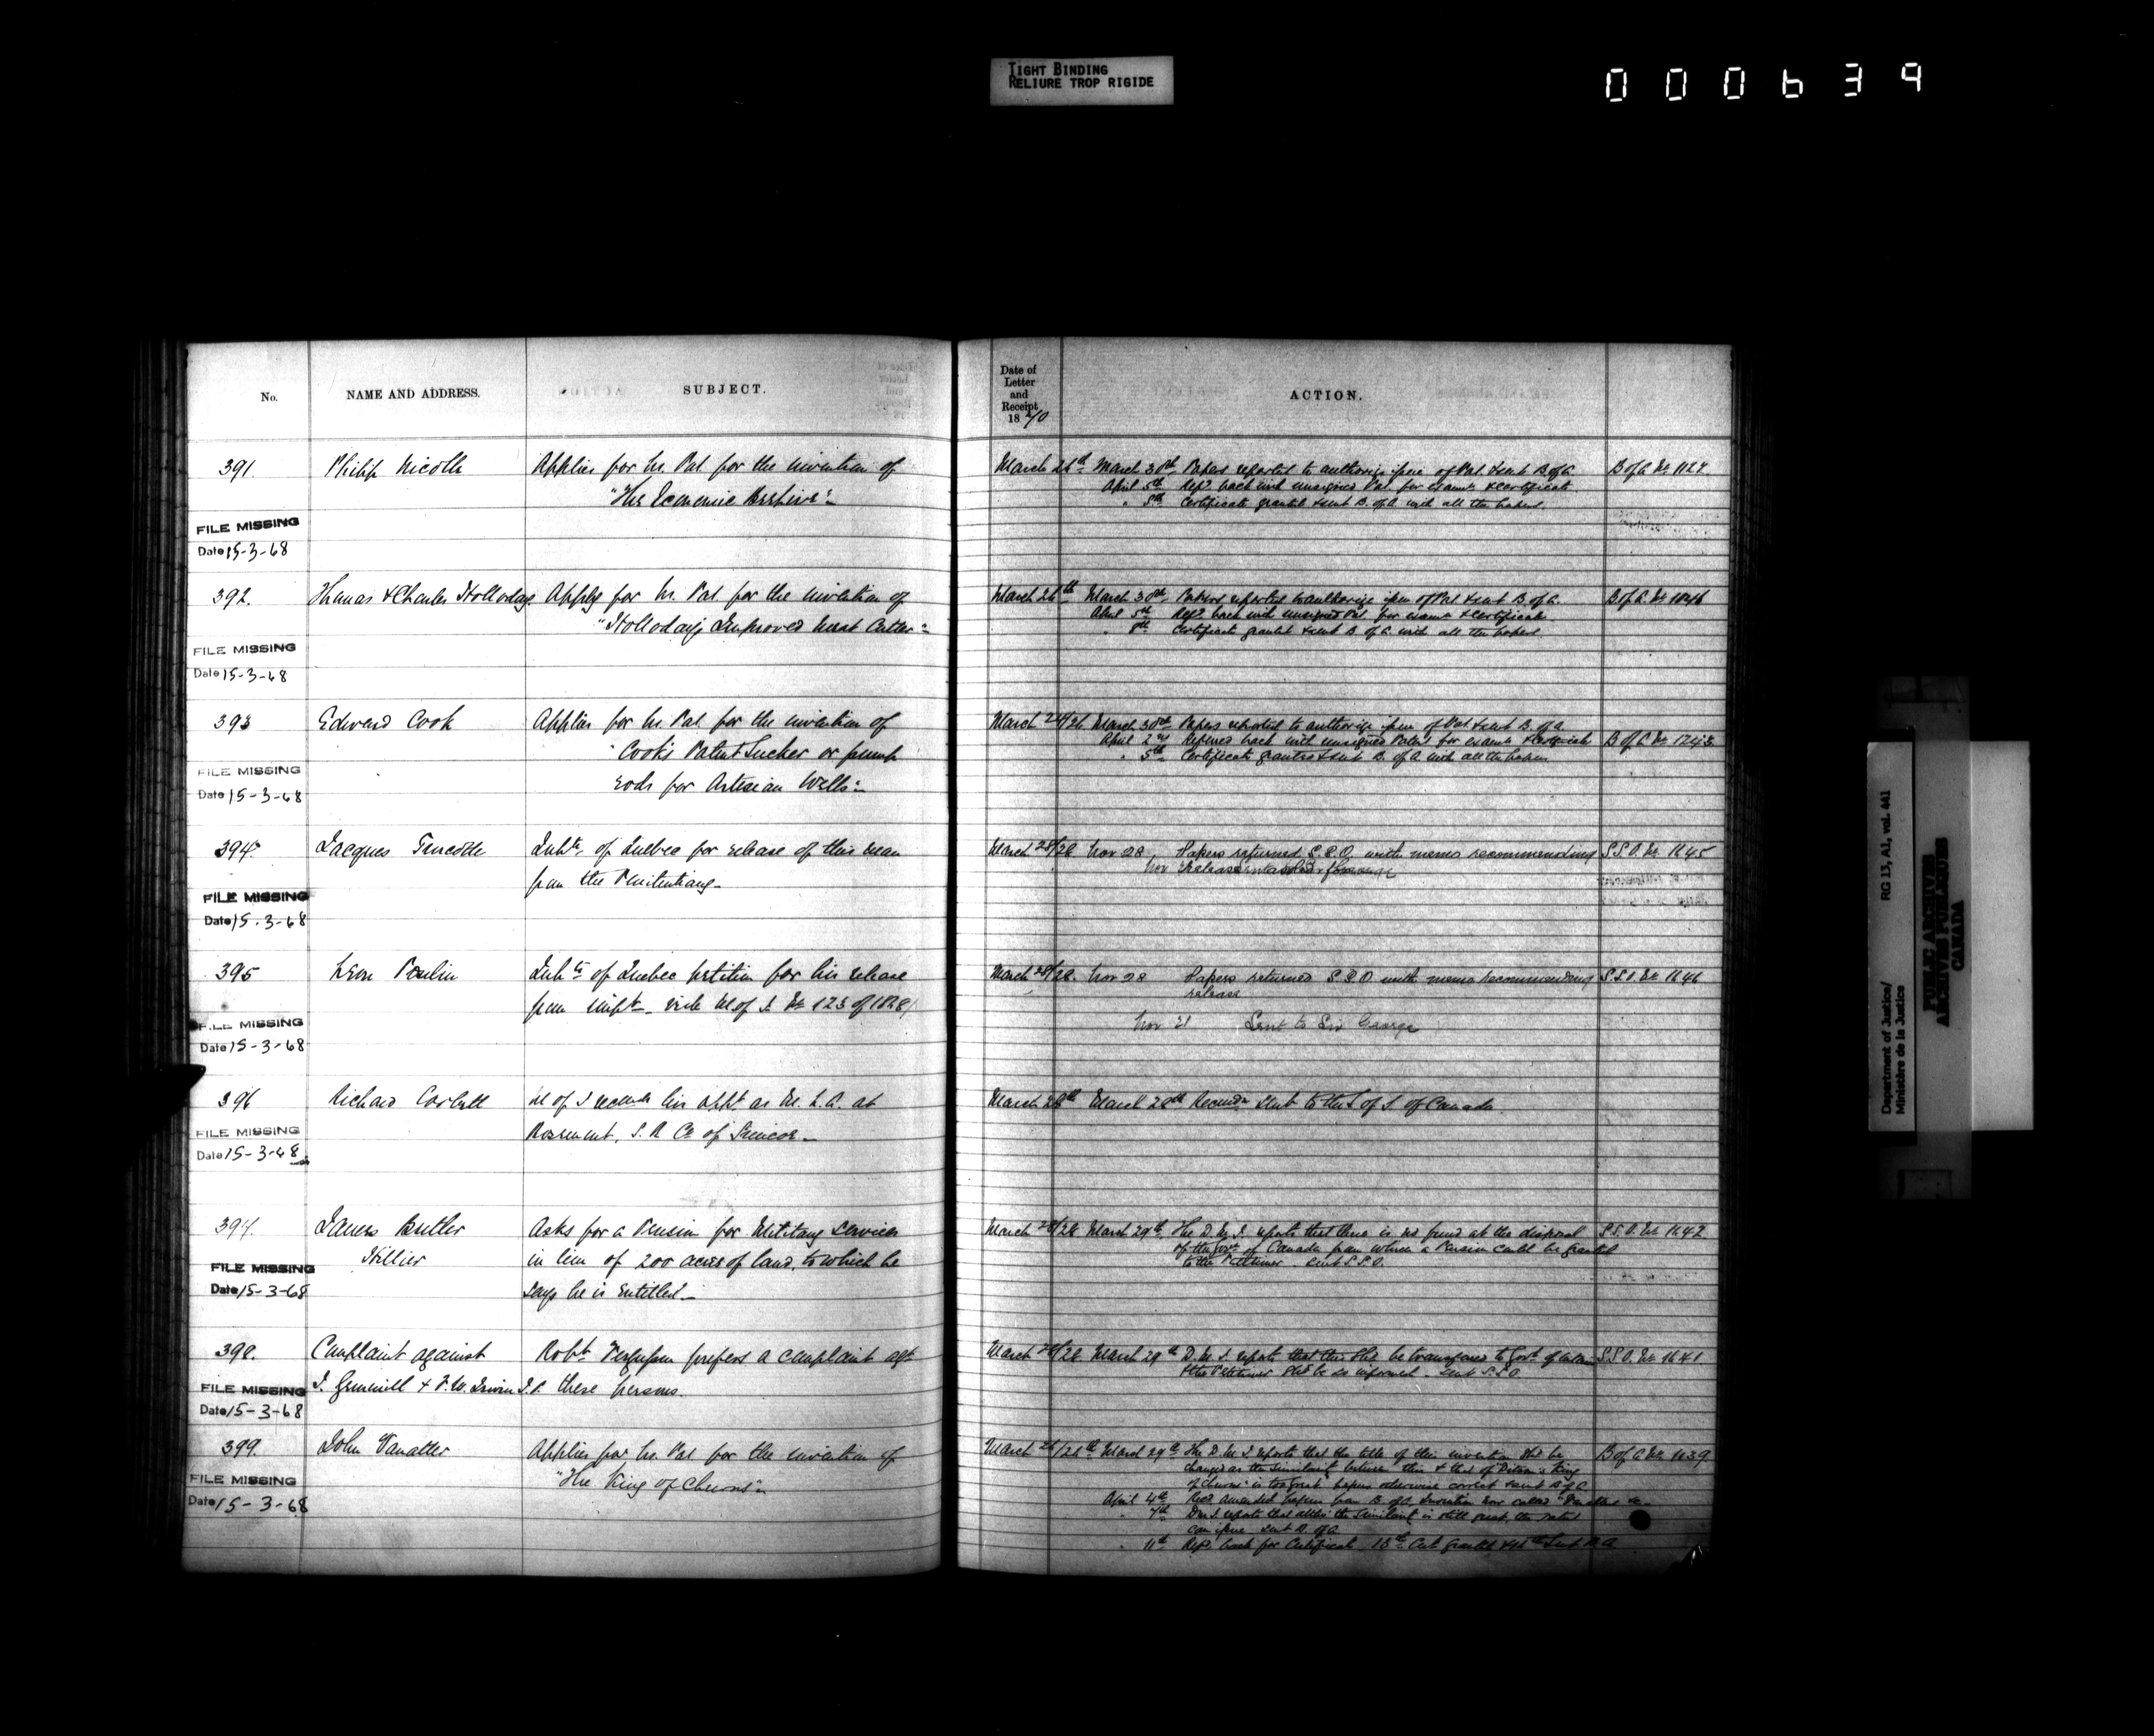 TIGHT BINDING
RELIURE TROP RIGIDE
000639
No.
NAME AND ADDRESS.
SUBJECT.
Date of
Letter
and
Receipt
1870
ACTION.
391.
Philip Nicolle
Applies for Lr. Pat. for the invention of
"The Economic
March 26th
March 30th Papers reported to authorize issue of Pat & sent B of A.
B of A No 1127.
April 5th Refd back with unsigned Pat. for examn & certificate
" 8th Certificate granted & sent B. of A. with all the papers.
FILE MISSING
Date 15-3-68
392.
Thomas & Charles Holloday
Apply for Lr. Pat for the invention of
"Holloday's Improved Meat Cutter"
March 26th
March 30th Papers reported to authorize issue of Pat & sent B. of A.
B. of A. No 1046
April 5th Refd back with unsigned Pat. for examn & certificate
" 8th Certificate granted & sent B of A with all the papers
FILE MISSING
Date 15-3-68
393
Edward Cook
Applies for Lr. Pat. for the invention of
"Cook's Patent Sucker or pump
rods for Artesian Wells"
March 24/26
March 30th Papers reported to authorize issue of Pat & sent B of A.
April 2nd Referred back with unsigned Patent for examn & certificate
B of A No 1243
" 5th Certificate granted & sent B. of A with all the papers
FILE MISSING
Date 15-3-68
394.
Jacques
Inhts. of Quebec for release of this man
from the Penitentiary
March 28/28
Nov 28 Papers returned S.S.O. with memo recommending
release
S.S.O. No 1145
FILE MISSING
Date 15-3-68
395
Leon Poulin
Inhts of Quebec petition for his release
from impt. vide M. of J. No 123 of 1868
March 28/28.
Nov 28 Papers returned S.S.O with memo recommending
release
S.S.O. No 1146
Nov 21 Sent to Sir George
FILE MISSING
Date 15-3-68
396
Richard Corbett
M of J recmds his appt as at
Rosemont, S. R Co of Simcoe
March 28th
March 28th Recmdn sent to the S of S. of Canada.
FILE MISSING
Date 15-3-68
397.
James Butler
Hillier
Asks for a Pension for Military Services
in lieu of 200 acres of land, to which he
says he is entitled
March 28/28
March 29th The D.M.J. reports that there is no fund at the disposal
of the Govt of Canada from which a Pension could be granted
to the Petitioner. Sent S.S.O.
S.S.O. No 1142.
FILE MISSING
Date 15-3-68
398.
Complaint against
J. & F.W. Irwin J.P.
Robt. Ferguson prefers a complaint agt
these persons.
March 28/28
March 29th D.M.J. reports that this shd be transferred to Govt of
& the Petitioner shd be so informed. Sent S.S.O
S.S.O. No 1141
FILE MISSING
Date 15-3-68
399.
John Vanatter
Applies for Lr. Pat for the invention of
"The King of Churns"
March 26/26th
March 29th The D.M.J reports that the title of this invention shd be
changed as the similarity between this & that of "King
of Churns" is too great papers otherwise correct & sent B of A
B of A No 1139
April 4th Recd amended papers from B. of A. Invention now called
" 7th D.M.J. reports that altho the similarity is still great, the patent
can issue. Sent B. of A.
" 11th Refd back for Certificate 13th Cert granted & sent B A
FILE MISSING
Date 15-3-68
Department of Justice/
Ministère de la Justice
RG 13, A1, vol. 441
PUBLIC ARCHIVES
ARCHIVES PUBLIQUES
CANADA